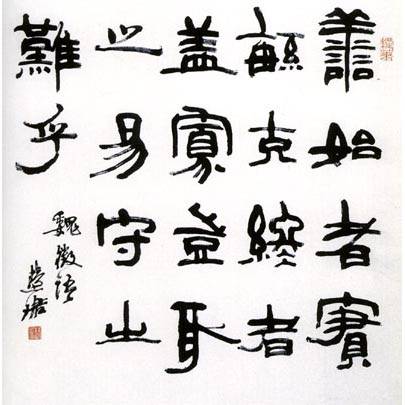 善始者實
繁克終者
盖寡豈取
之易守之
難乎
魏徵语